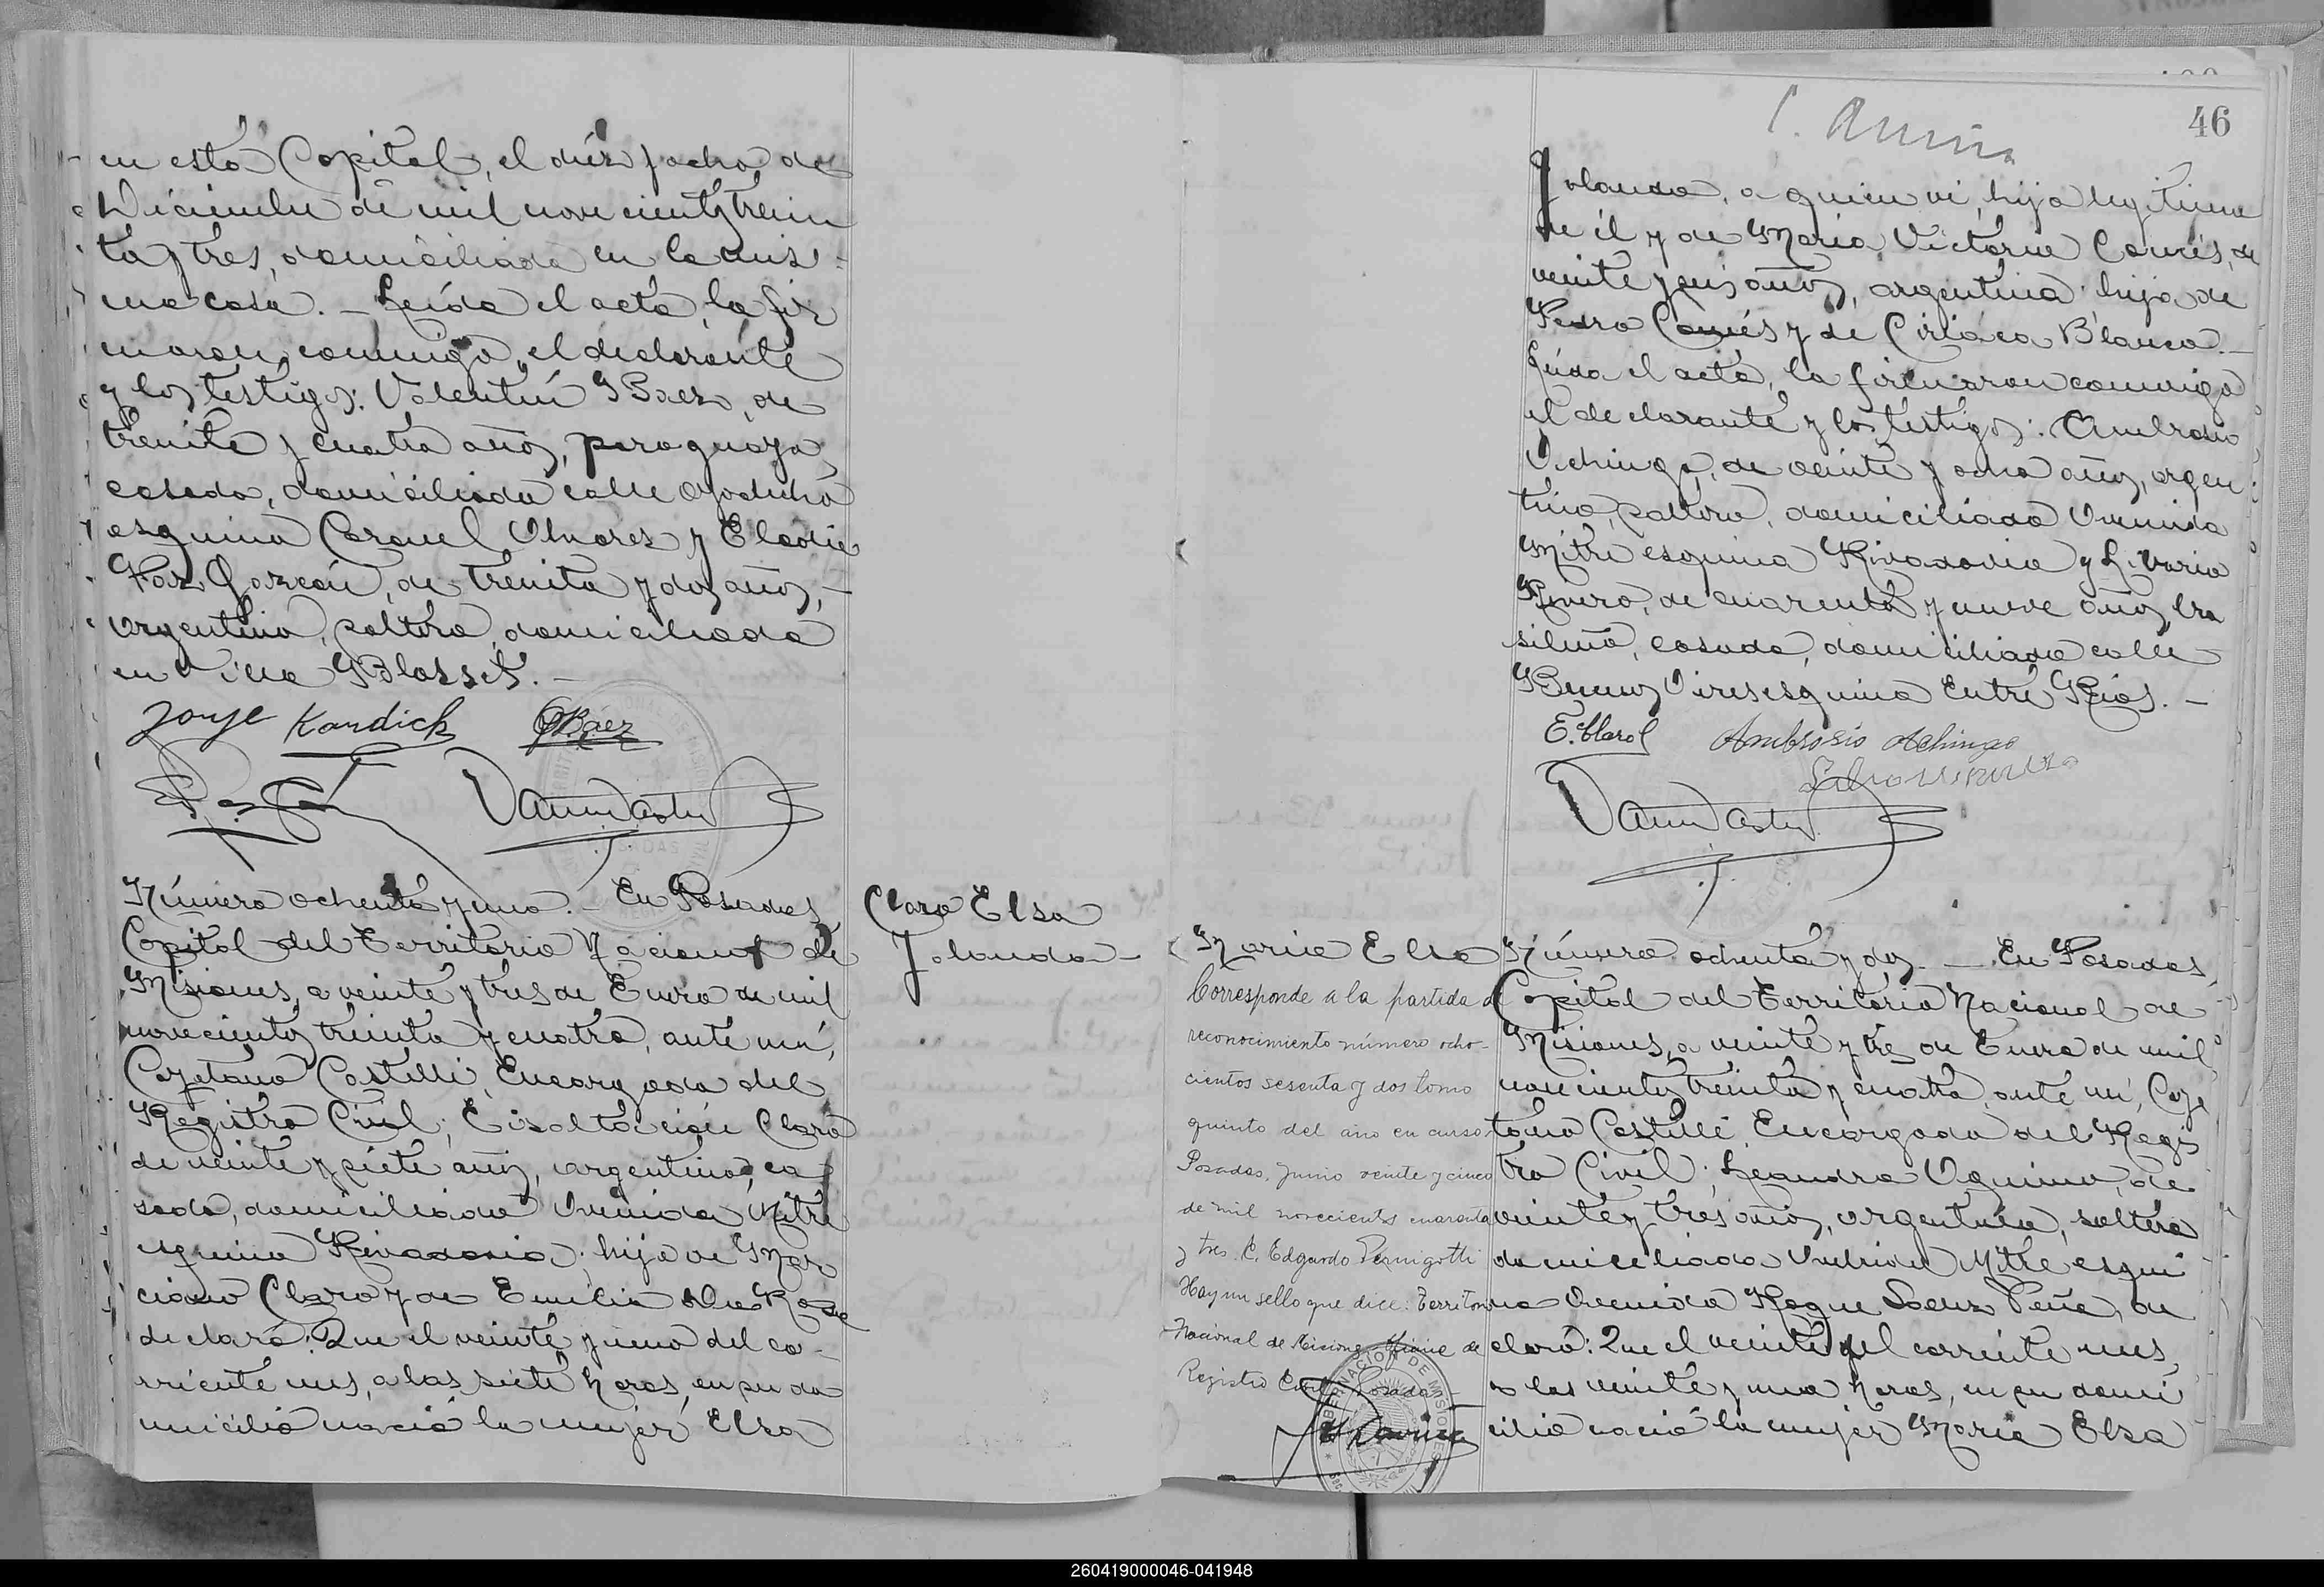 en esta Capital, el diez y ocho de
Diciembre de mil novecientos trein
ta y tres, domiciliada en la mis-
ma casa. — Leída el acta, la fir
maron conmigo, el declarante
y los testigos: Valentín Baez, de
treinta y cuatro años, paraguayo,
casado, domiciliado calle Ayacucho
esquina Coronel Alvarez y Eladio
Paz Garzón, de treinta y dos años, —
argentino, soltero, domiciliado
en Villa Blosset. —
Jorge Kandich VBáez
Número ochenta y uno. — En Posadas,
Capital del Territorio Nacional de
Misiones, a veinte y tres de Enero de mil
novecientos treinta y cuatro, ante mí,
Cayetano Castelli, Encargado del
Registro Civil; Exaltación Claro
de veinte y siete años, argentino, ca
sado, domiciliado Avenida Mitre
esquina Rivadavia; hijo de Mar
ciano Claro y de Emilia
declaró: Que el veinte y uno del co-
rriente mes, a las siete horas, en su do
micilio nació la mujer Elsa
Claro Elsa
Jolanda —
46
Jolanda, a quien vi, hija legítima
de él y de María Victoria Comés, de
veinte y seis años, argentina hija de
Pedro Comés y de Ciriaca Blanco. —
Leída el acta, la firmaron conmigo
el declarante y los testigos: Ambrosio
Achinga, de veinte y ocho años, argen
tino, soltero, domiciliado Avenida
Mitre esquina Rivadavia y
Rivero, de cuarenta y nueve años, bra
sileño, casado, domiciliado calle
Buenos Aires esquina Entre Ríos. —
E. Claro Ambrosio Achinga
Maria Elsa
Corresponde a la partida de
reconocimiento número ocho-
cientos sesenta y dos tomo
quinto del año en curso.
Posadas, Junio veinte y cinco
de mil novecientos cuarenta
y tres. C. Edgardo Pernigotti
Hay un sello que dice: Territorio
Nacional de Misiones Oficina de
Registro Civil Posadas —
GOBERNACION DE MISIONES
Número ochenta y dos. — En Posadas,
Capital del Territorio Nacional de
Misiones, a veinte y tres de Enero de mil
novecientos treinta y cuatro, ante mí, Caye
tano Castelli, Encargado del Regis
tro Civil; Leandro Aquino, de
veinte y tres años, argentino, soltero
domiciliado Avenida Mitre esqui
na Avenida Roque Saenz Peña, de
claró: Que el veinte del corriente mes,
a las veinte y una horas, en su domi
cilio nació la mujer María Elsa
260419000046-041948